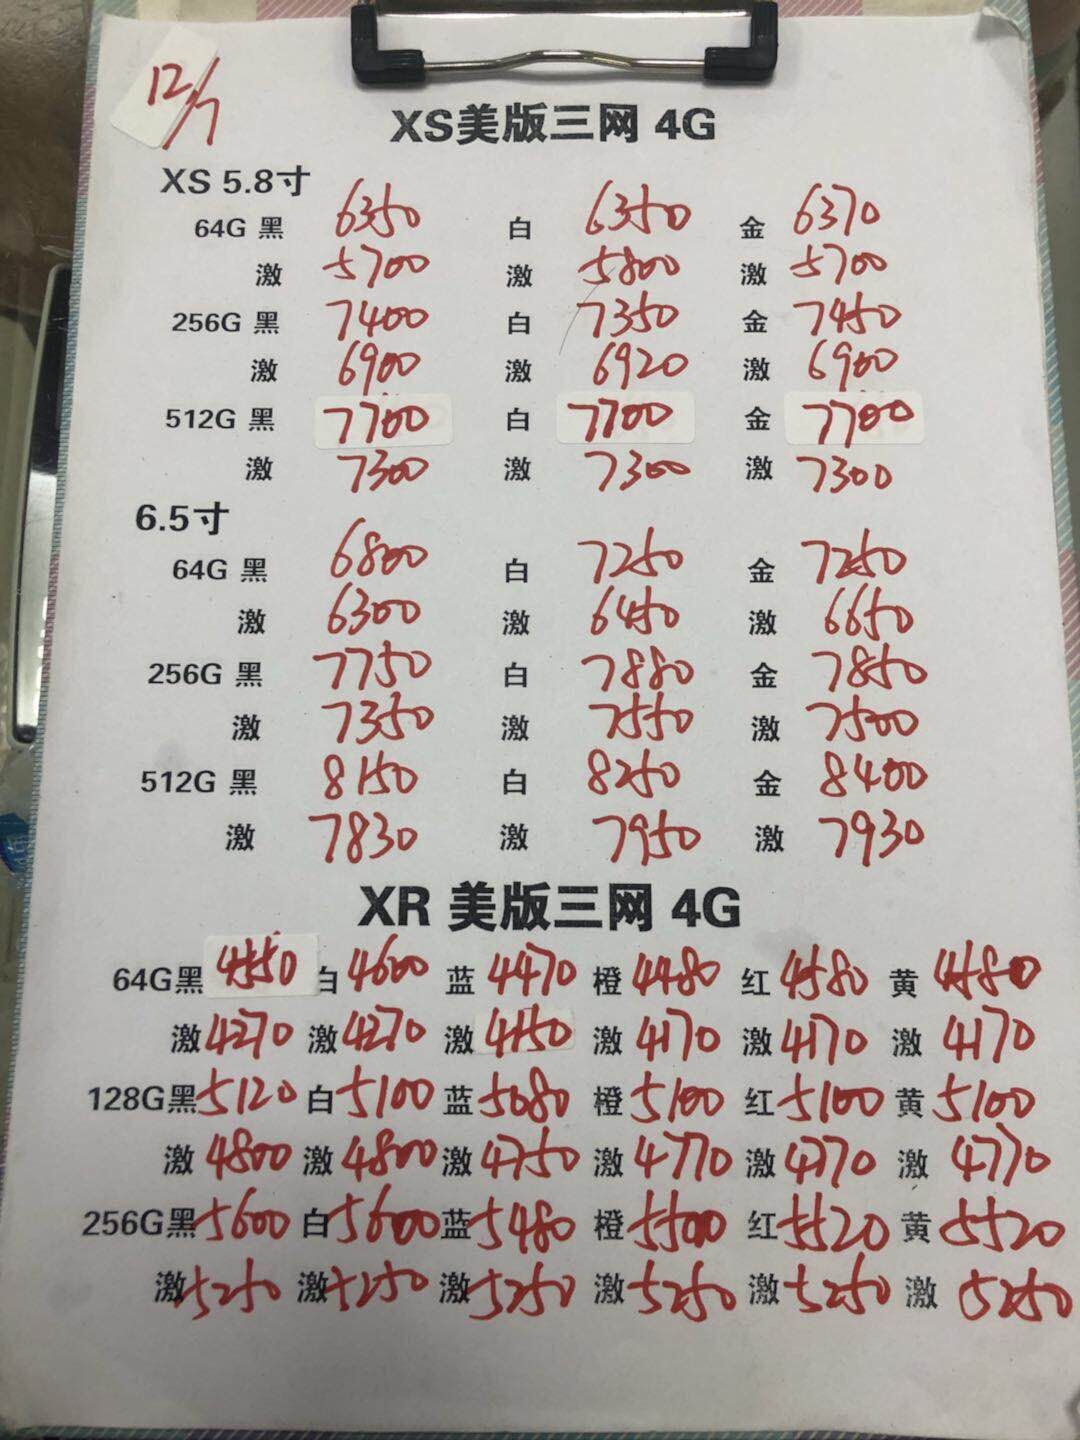 12/7
XS美版三网 4G
XS 5.8寸
64G 黑 6350 白 6350 金 6370
激 5700 激 5800 激 5700
256G 黑 7400 白 7350 金 7450
激 6900 激 6920 激 6900
512G 黑 7700 白 7700 金 7700
激 7300 激 7300 激 7300
6.5寸
64G 黑 6800 白 7250 金 7250
激 6300 激 6450 激 6650
256G 黑 7750 白 7880 金 7850
激 7350 激 7550 激 7500
512G 黑 8150 白 8250 金 8400
激 7830 激 7950 激 7930
XR 美版三网 4G
64G黑 4550 白 4600 蓝 4470 橙 4480 红 4580 黄 4580
激 4270 激 4270 激 4150 激 4170 激 4170 激 4170
128G黑 5120 白 5100 蓝 5080 橙 5100 红 5100 黄 5100
激 4800 激 4800 激 4750 激 4770 激 4770 激 4770
256G黑 5600 白 5600 蓝 5480 橙 5500 红 5520 黄 5520
激 5250 激 5250 激 5250 激 5250 激 5250 激 5250